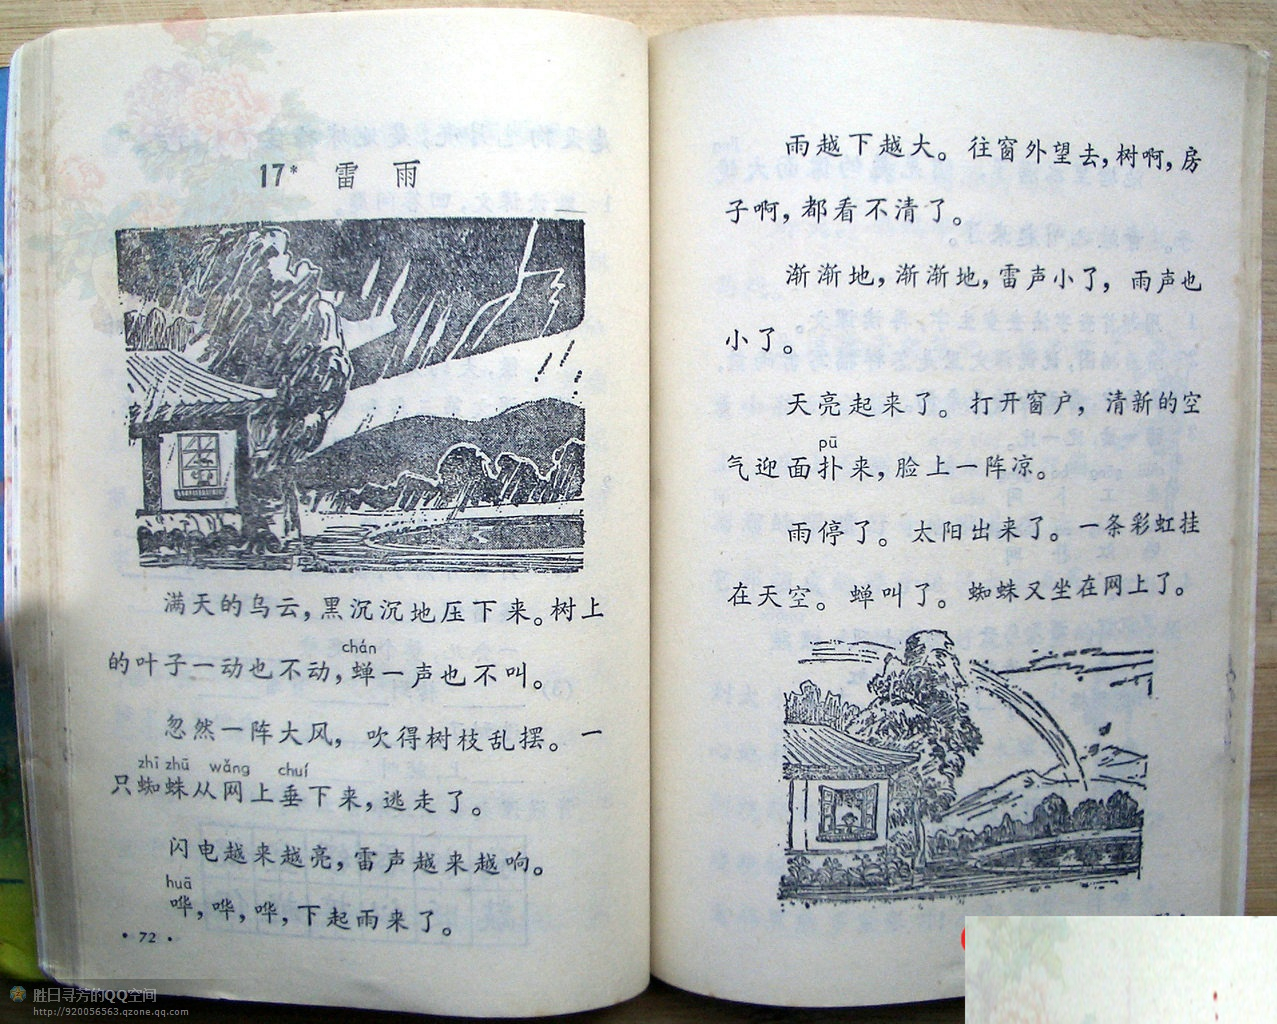 17* 雷雨
满天的乌云，黑沉沉地压下来。树上
chán
的叶子一动也不动，蝉一声也不叫。
忽然一阵大风，吹得树枝乱摆。一
zhī zhū wǎng chuí
只蜘蛛从网上垂下来，逃走了。
闪电越来越亮，雷声越来越响。
huā
哗，哗，哗，下起雨来了。
· 72 ·
雨越下越大。往窗外望去，树啊，房
子啊，都看不清了。
渐渐地，渐渐地，雷声小了，雨声也
小了。
天亮起来了。打开窗户，清新的空
pū
气迎面扑来，脸上一阵凉。
雨停了。太阳出来了。一条彩虹挂
在天空。蝉叫了。蜘蛛又坐在网上了。
胜日寻芳的QQ空间
http://920056563.qzone.qq.com